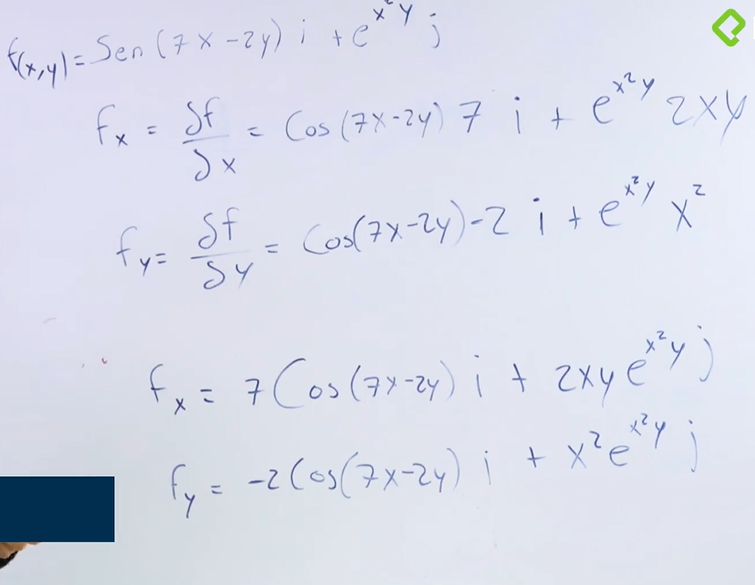 f(x,y) = Sen (7x-2y) i + e^x²y j
fx = δf/δx = Cos (7x-2y) 7 i + e^x²y 2xy
fy = δf/δy = Cos(7x-2y) -2 i + e^x²y x²
fx = 7 Cos(7x-2y) i + 2xy e^x²y j
fy = -2 Cos(7x-2y) i + x² e^x²y j